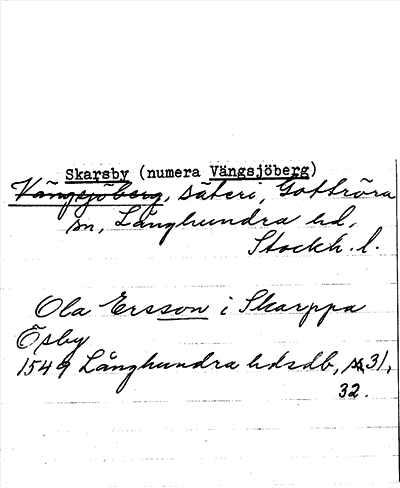 Skarsby (numera Vängsjöberg)
Vängsjöberg, säteri, Gottröra
sn, Långhundra hd,
Stockh. l.
Ola Ersson i Skarppa
Ösby
1549 Långhundra hdsdb, s. 31,
32.